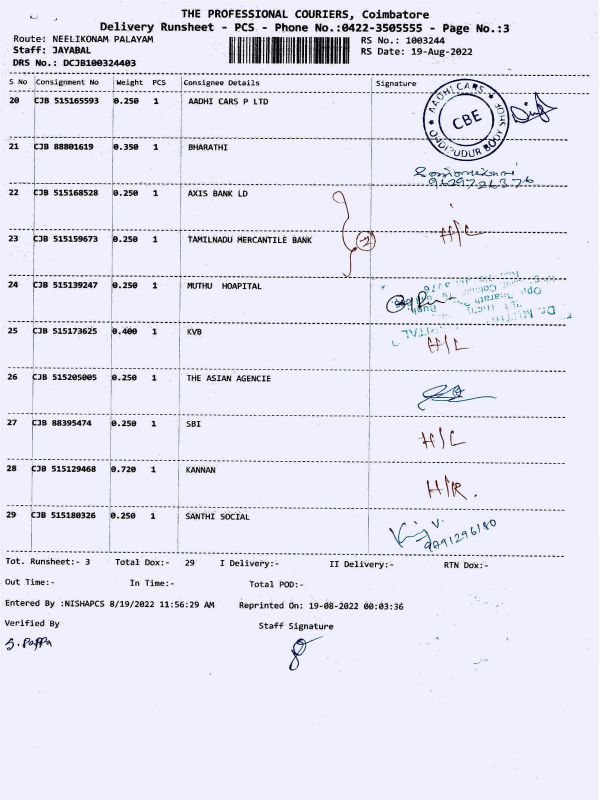 THE PROFESSIONAL COURIERS, Coimbatore
Delivery Runsheet - PCS - Phone No.:0422-3505555 - Page No.:3
Route: NEELIKONAM PALAYAM RS No.: 1003244
Staff: JAYABAL RS Date: 19-Aug-2022
DRS No.: DCJB100324403
S No Consignment No Weight PCS Consignee Details Signature
20 CJB 515165593 0.250 1 AADHI CARS P LTD
AADHI CARS
CBE
21 CJB 88801619 0.350 1 BHARATHI
9629726376
22 CJB 515168528 0.250 1 AXIS BANK LD
23 CJB 515159673 0.250 1 TAMILNADU MERCANTILE BANK H/L
24 CJB 515139247 0.250 1 MUTHU HOAPITAL
25 CJB 515173625 0.400 1 KVB H/L
26 CJB 515205005 0.250 1 THE ASIAN AGENCIE
27 CJB 88395474 0.250 1 SBI H/L
28 CJB 515129468 0.720 1 KANNAN H/R.
29 CJB 515180326 0.250 1 SANTHI SOCIAL
9791296180
Tot. Runsheet:- 3 Total Dox:- 29 I Delivery:- II Delivery:- RTN Dox:-
Out Time:- In Time:- Total POD:-
Entered By :NISHAPCS 8/19/2022 11:56:29 AM Reprinted On: 19-08-2022 00:03:36
Verified By Staff Signature
S. Pappa